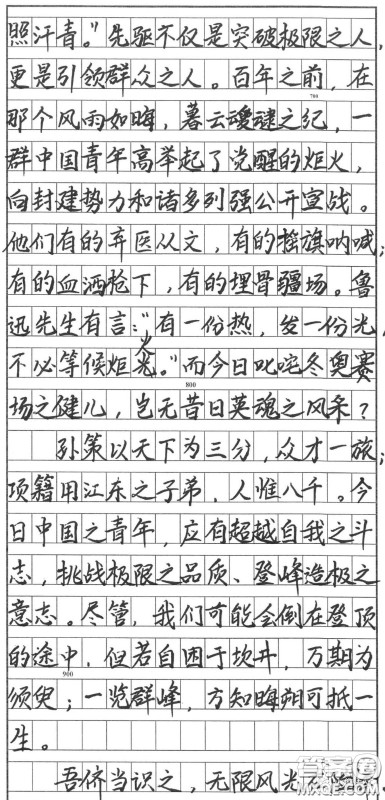 照汗青。”先驱不仅是突破极限之人,
更是引领群众之人。百年之前,在
700
那个风雨如晦,暮云叆叇之纪,一
群中国青年高举起了觉醒的炬火,
向封建势力和诸多列强公开宣战。
他们有的弃医从文,有的摇旗呐喊;
有的血洒枪下,有的埋骨疆场。鲁
迅先生有言:“有一份热,发一份光,
不必等候炬火。”而今日叱咤冬奥赛
800
场之健儿,岂无昔日英魂之风采?
孙策以天下为三分,众才一旅;
项籍用江东之子弟,人惟八千。今
日中国之青年,应有超越自我之斗
志,挑战极限之品质、登峰造极之
意志。尽管,我们可能会倒在登顶
的途中,但若自困于坎井,万期为
900
须臾;一览群峰,方知晦朔可抵一
生。
吾侪当识之,无限风光